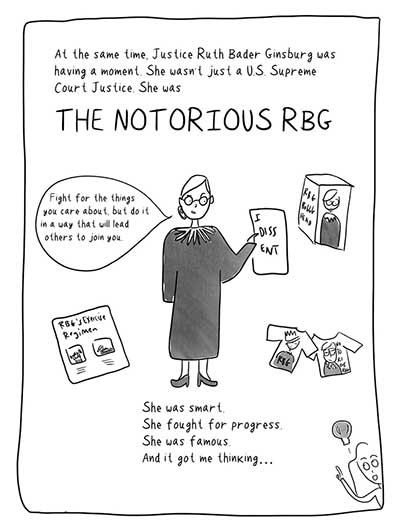 At the same time, Justice Ruth Bader Ginsburg was
having a moment. She wasn't just a U.S. Supreme
Court Justice. She was
THE NOTORIOUS RBG
Fight for the things
you care about, but do it
in a way that will lead
others to join you.
I
DISS
ENT
RBG
BOBBLE
HEAD
RBG's Exercise
Regimen
RBG
She was smart.
She fought for progress.
She was famous.
And it got me thinking...